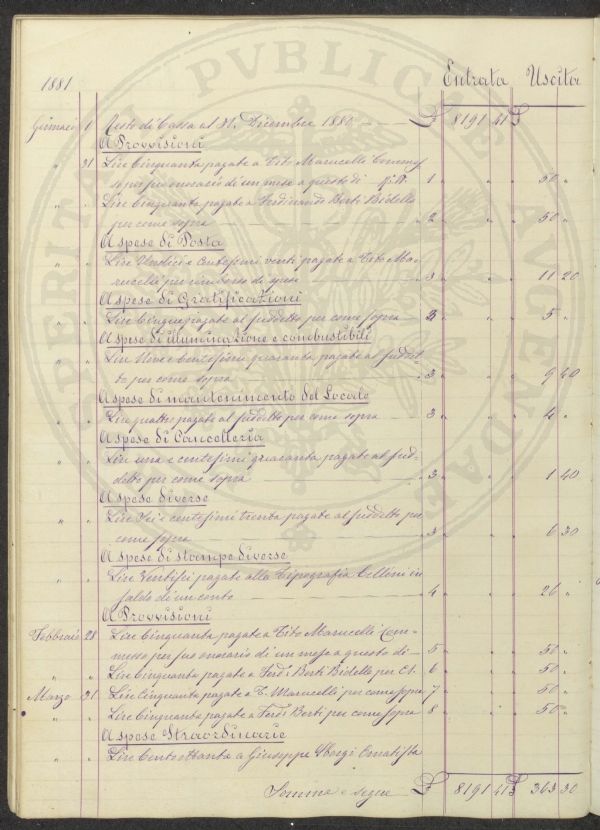 SPERITATI PVBLICAE AVGENDAE
1881 Entrata Uscita
Gennaio 1 Resto di Cassa al 31. Dicembre 1880 £ 8191 41 £
A Provvisioni
" 31 Lire Cinquanta pagate a Tito Marucelli Commes
so per suo onorario di un mese a questo dì 1 " " 50 "
" " Lire Cinquanta pagate a Ferdinando Berti Bidello
per come sopra 2 " " 50 "
A spese di Posta
" " Lire Undici e Centesimi venti pagate a Tito Ma-
rucelli per rimborso di spese 3 " " 11 20
A spese di Gratificazioni
" " Lire Cinque pagate al suddetto per come sopra 3 " " 5 "
A spese di illuminazione e combustibili
" " Lire Nove e Centesimi quaranta pagate al suddet-
to per come sopra 3 " " 9 40
A spese di mantenimento del Locale
" " Lire quattro pagate al suddetto per come sopra 3 " " 4 "
A spese di Cancelleria
" " Lire una e centesimi quaranta pagate al sud-
detto per come sopra 3 " " 1 40
A spese diverse
" " Lire Sei e centesimi trenta pagate al suddetto per
come sopra 3 " " 6 30
A spese di stampe diverse
" " Lire Ventisei pagate alla Tipografia Cellini in
saldo di un conto 4 " " 26 "
A Provvisioni
Febbraio 28 Lire Cinquanta pagate a Tito Marucelli Com-
messo per suo onorario di un mese a questo dì 5 " " 50 "
" " Lire Cinquanta pagate a Ferd. Berti Bidello per C.s. 6 " " 50 "
Marzo 31 Lire Cinquanta pagate a T. Marucelli per come sopra 7 " " 50 "
" " Lire Cinquanta pagate a Ferd. Berti per come sopra 8 " " 50 "
A spese Straordinarie
" " Lire Centottanta a Giuseppe
Somma e segue £ 8191 41 £ 363 30